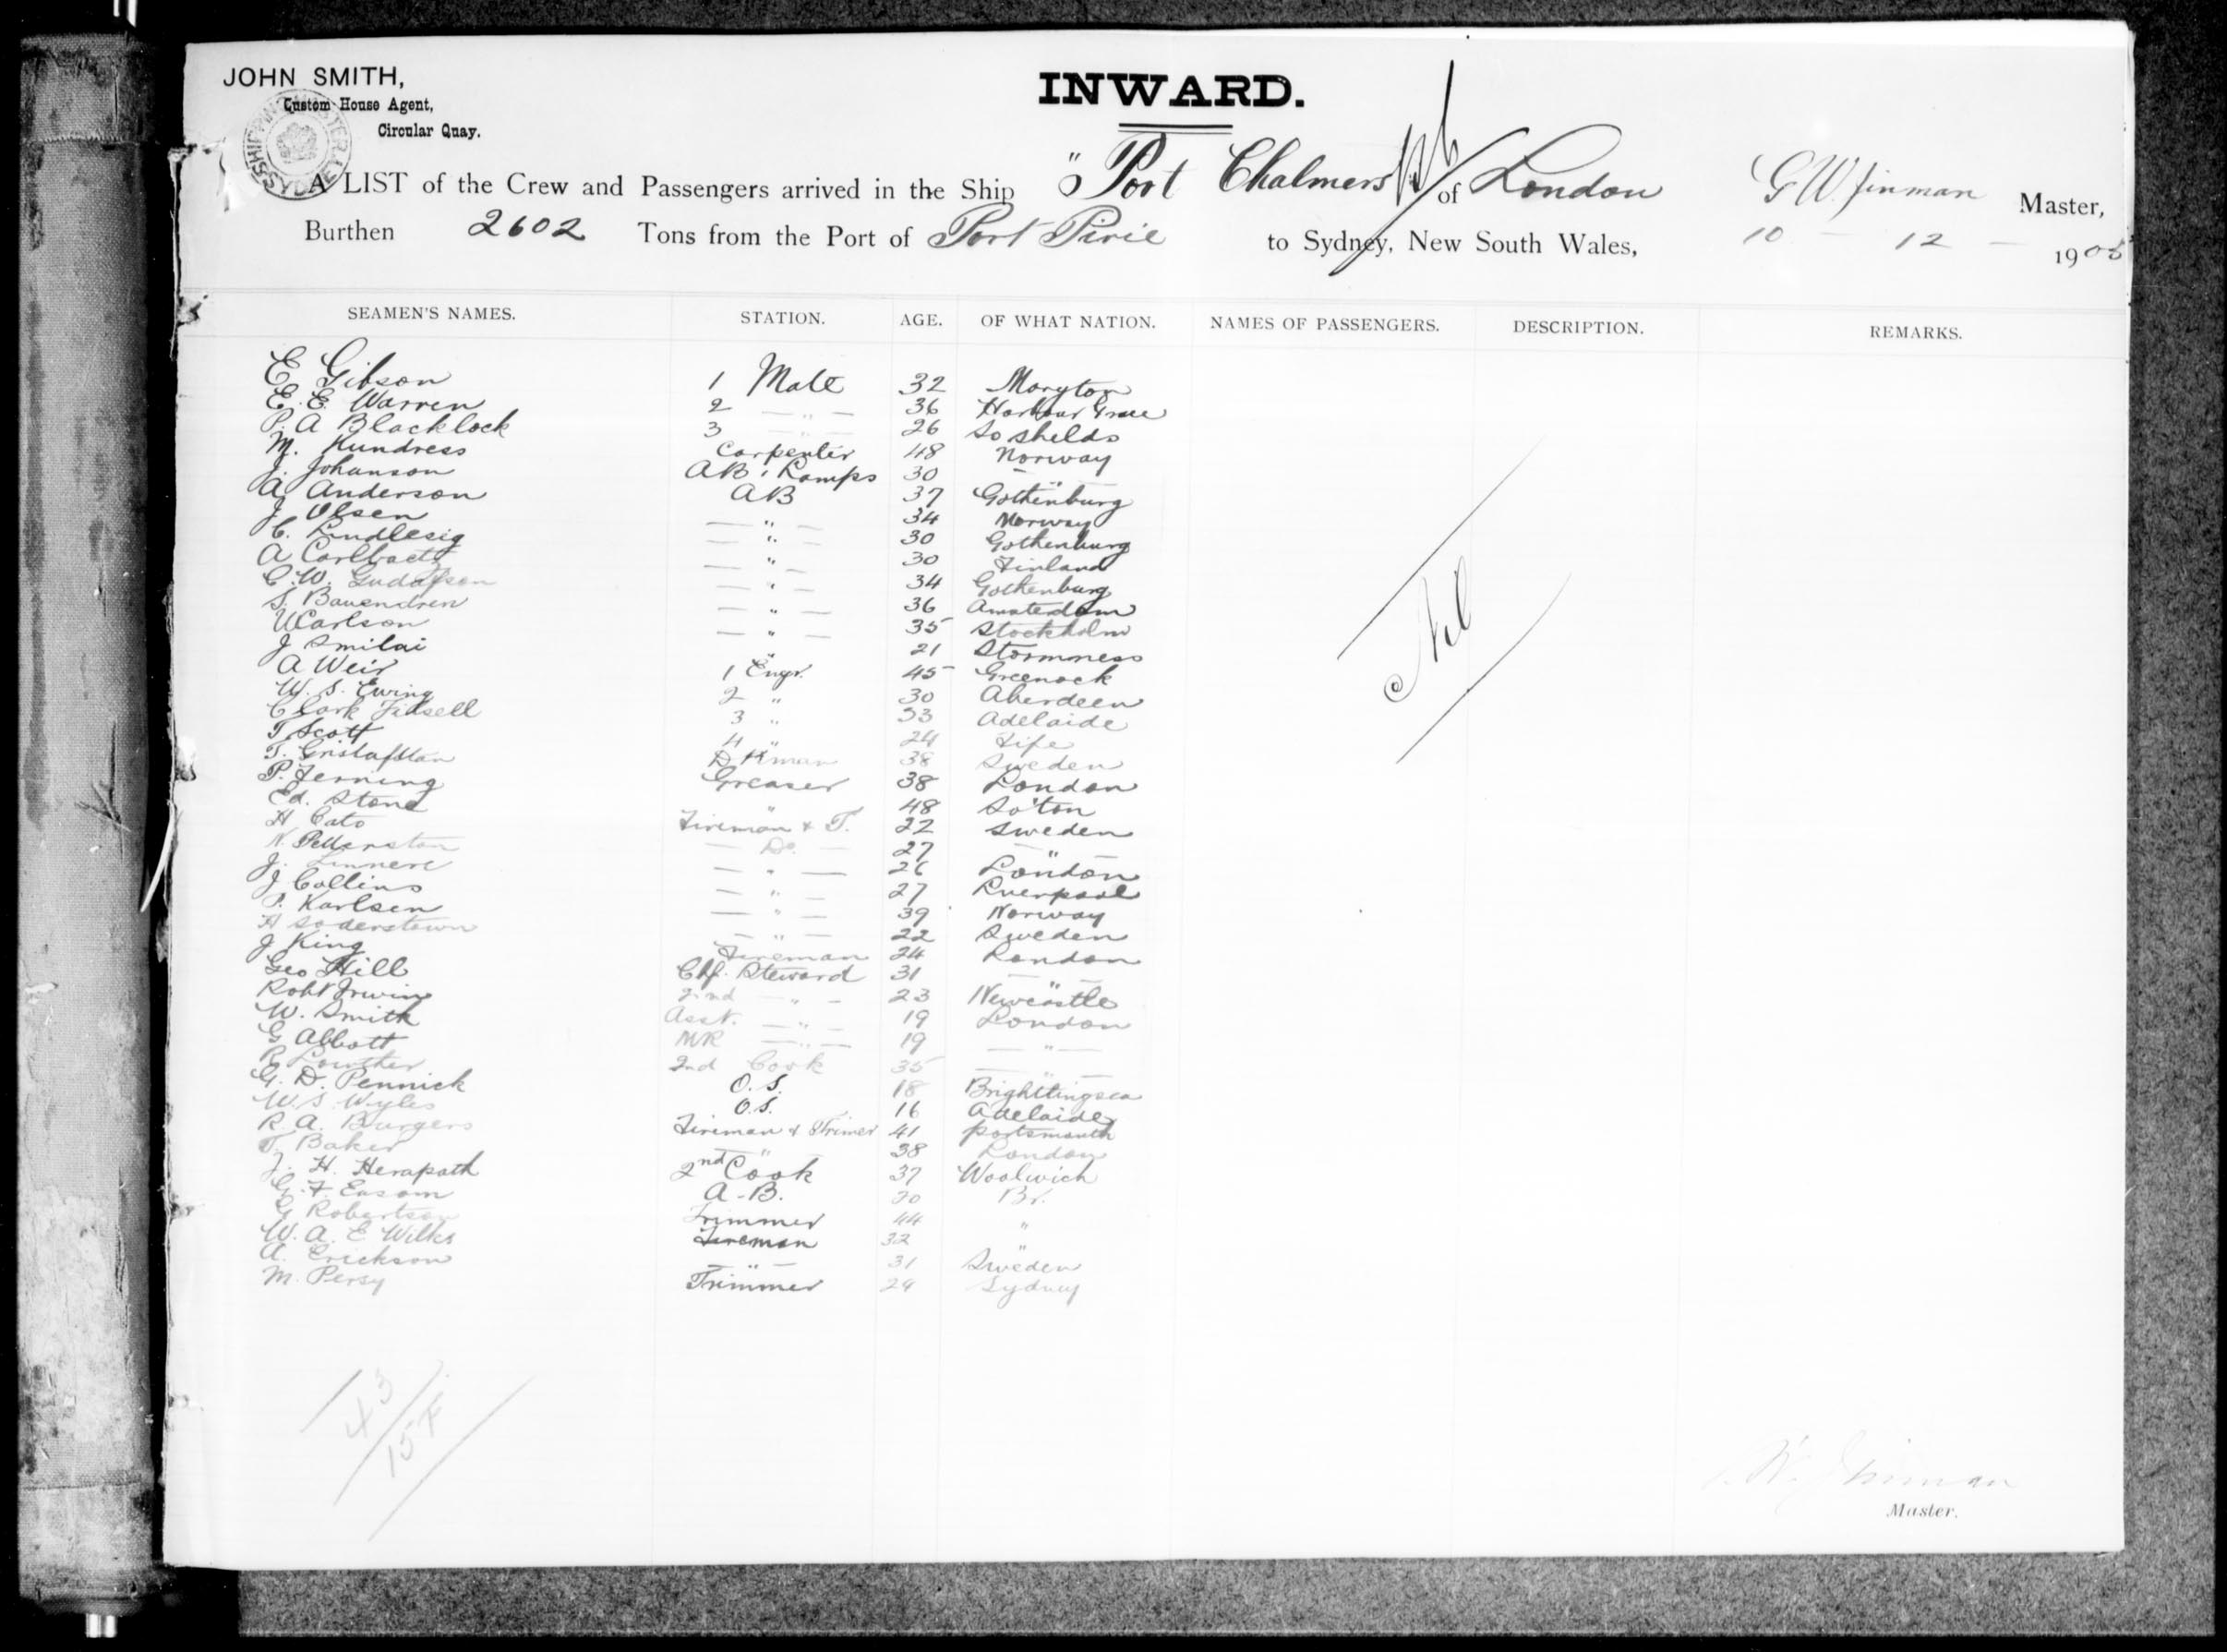 JOHN SMITH,
Custom House Agent,
Circular Quay.
INWARD.
A LIST of the Crew and Passengers arrived in the Ship "Port Chalmers of London G W Master,
Burthen 2602 Tons from the Port of Port Pirie to Sydney, New South Wales, 10 - 12 - 1905
SEAMEN'S NAMES. STATION. AGE. OF WHAT NATION. NAMES OF PASSENGERS. DESCRIPTION. REMARKS.
E Gibson 1 Mate 32 Maryton
E. E. Warren 2 — " — 36 Harbour Grace
P. A Blacklock 3 26 So Shelds
M. Kundress Carpenter 48 Norway
J. Johanson AB & Lamps 30 "
A Anderson AB 37 Gothenburg
J Olsen — " — 34 Norway
C. Lindlesig — " — 30 Gothenburg
A — " — 30 Finland
C. W. — " — 34 Gothenburg
S. — " — 36 Amsterdam
Carlson — " — 35 Stockholm
J Smilai " 21 Stormness
A Weir 1 Engr. 45 Greenock
W. S. Ewing 2 " 30 Aberdeen
Clark 3 " 33 Adelaide
T. Scott 4 " 24 Fife
T. D Kman 38 Sweden
P. Ferning Greaser 38 London
Ed. Stone " 48 So'ton
H Cato Fireman & T. 22 Sweden
N. Petterston — Do. — 27 — " —
J. Linnere — " — 26 London
J Collins — " — 27 Liverpool
P. Karlsen — " — 39 Norway
H Soderstown — " — 22 Sweden
J King Fireman 24 London
Geo Hill Chf. Steward 31 — " —
Robt Irwin 2nd — " — 23 Newcastle
W. Smith Asst. — " — 19 London
G Abbott MR — " — 19 — " —
R Lowther 2nd Cook 35 — " —
G. D. Pennick O. S. 18 Brighttingsea
W. S. Wyles O. S. 16 Adelaide
R. A. Burgers Fireman & Trimer 41 Portsmouth
T. Baker — " — 38 London
J. H. Herapath 2nd Cook 37 Woolwich
G. F. Easom A-B. 20 Br.
G Robertson Trimmer 44 "
W. A. E Wilks Fireman 32 "
A. Erickson — " — 31 Sweden
M. Persy Trimmer 24 Sydney
Nil
43
15 F
Master.